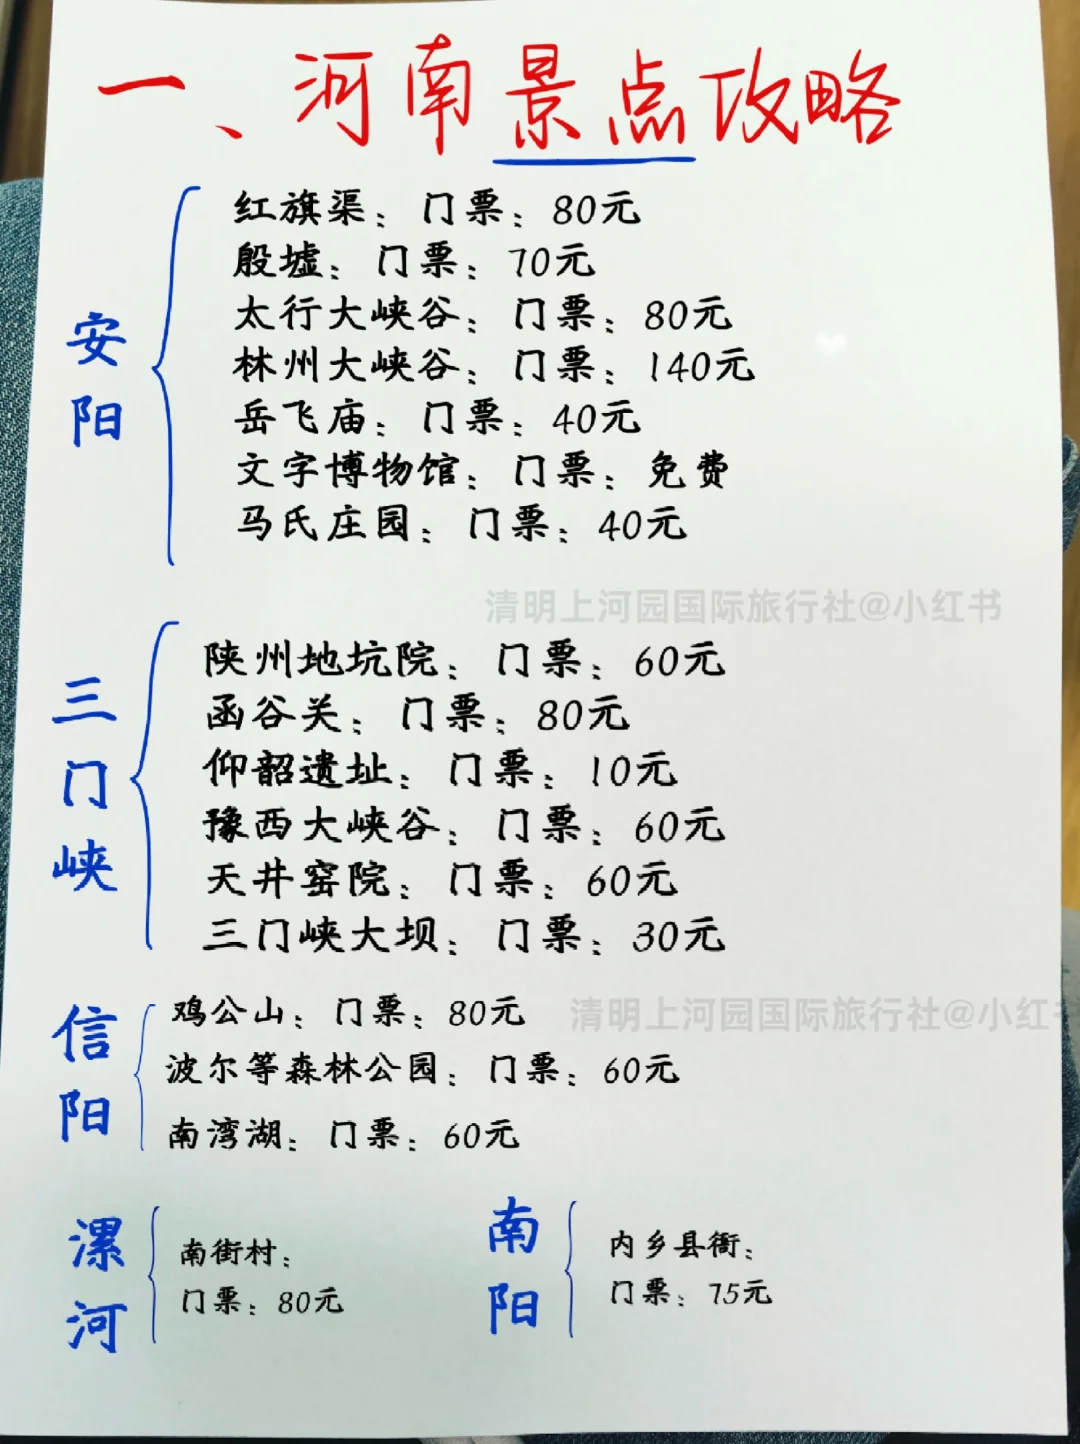 一、河南景点攻略
安阳
红旗渠：门票：80元
殷墟：门票：70元
太行大峡谷：门票：80元
林州大峡谷：门票：140元
岳飞庙：门票：40元
文字博物馆：门票：免费
马氏庄园：门票：40元
清明上河园国际旅行社@小红书
三门峡
陕州地坑院：门票：60元
函谷关：门票：80元
仰韶遗址：门票：10元
豫西大峡谷：门票：60元
天井窑院：门票：60元
三门峡大坝：门票：30元
信阳
鸡公山：门票：80元
清明上河园国际旅行社@小红书
波尔等森林公园：门票：60元
南湾湖：门票：60元
漯河
南街村：
门票：80元
南阳
内乡县衙：
门票：75元